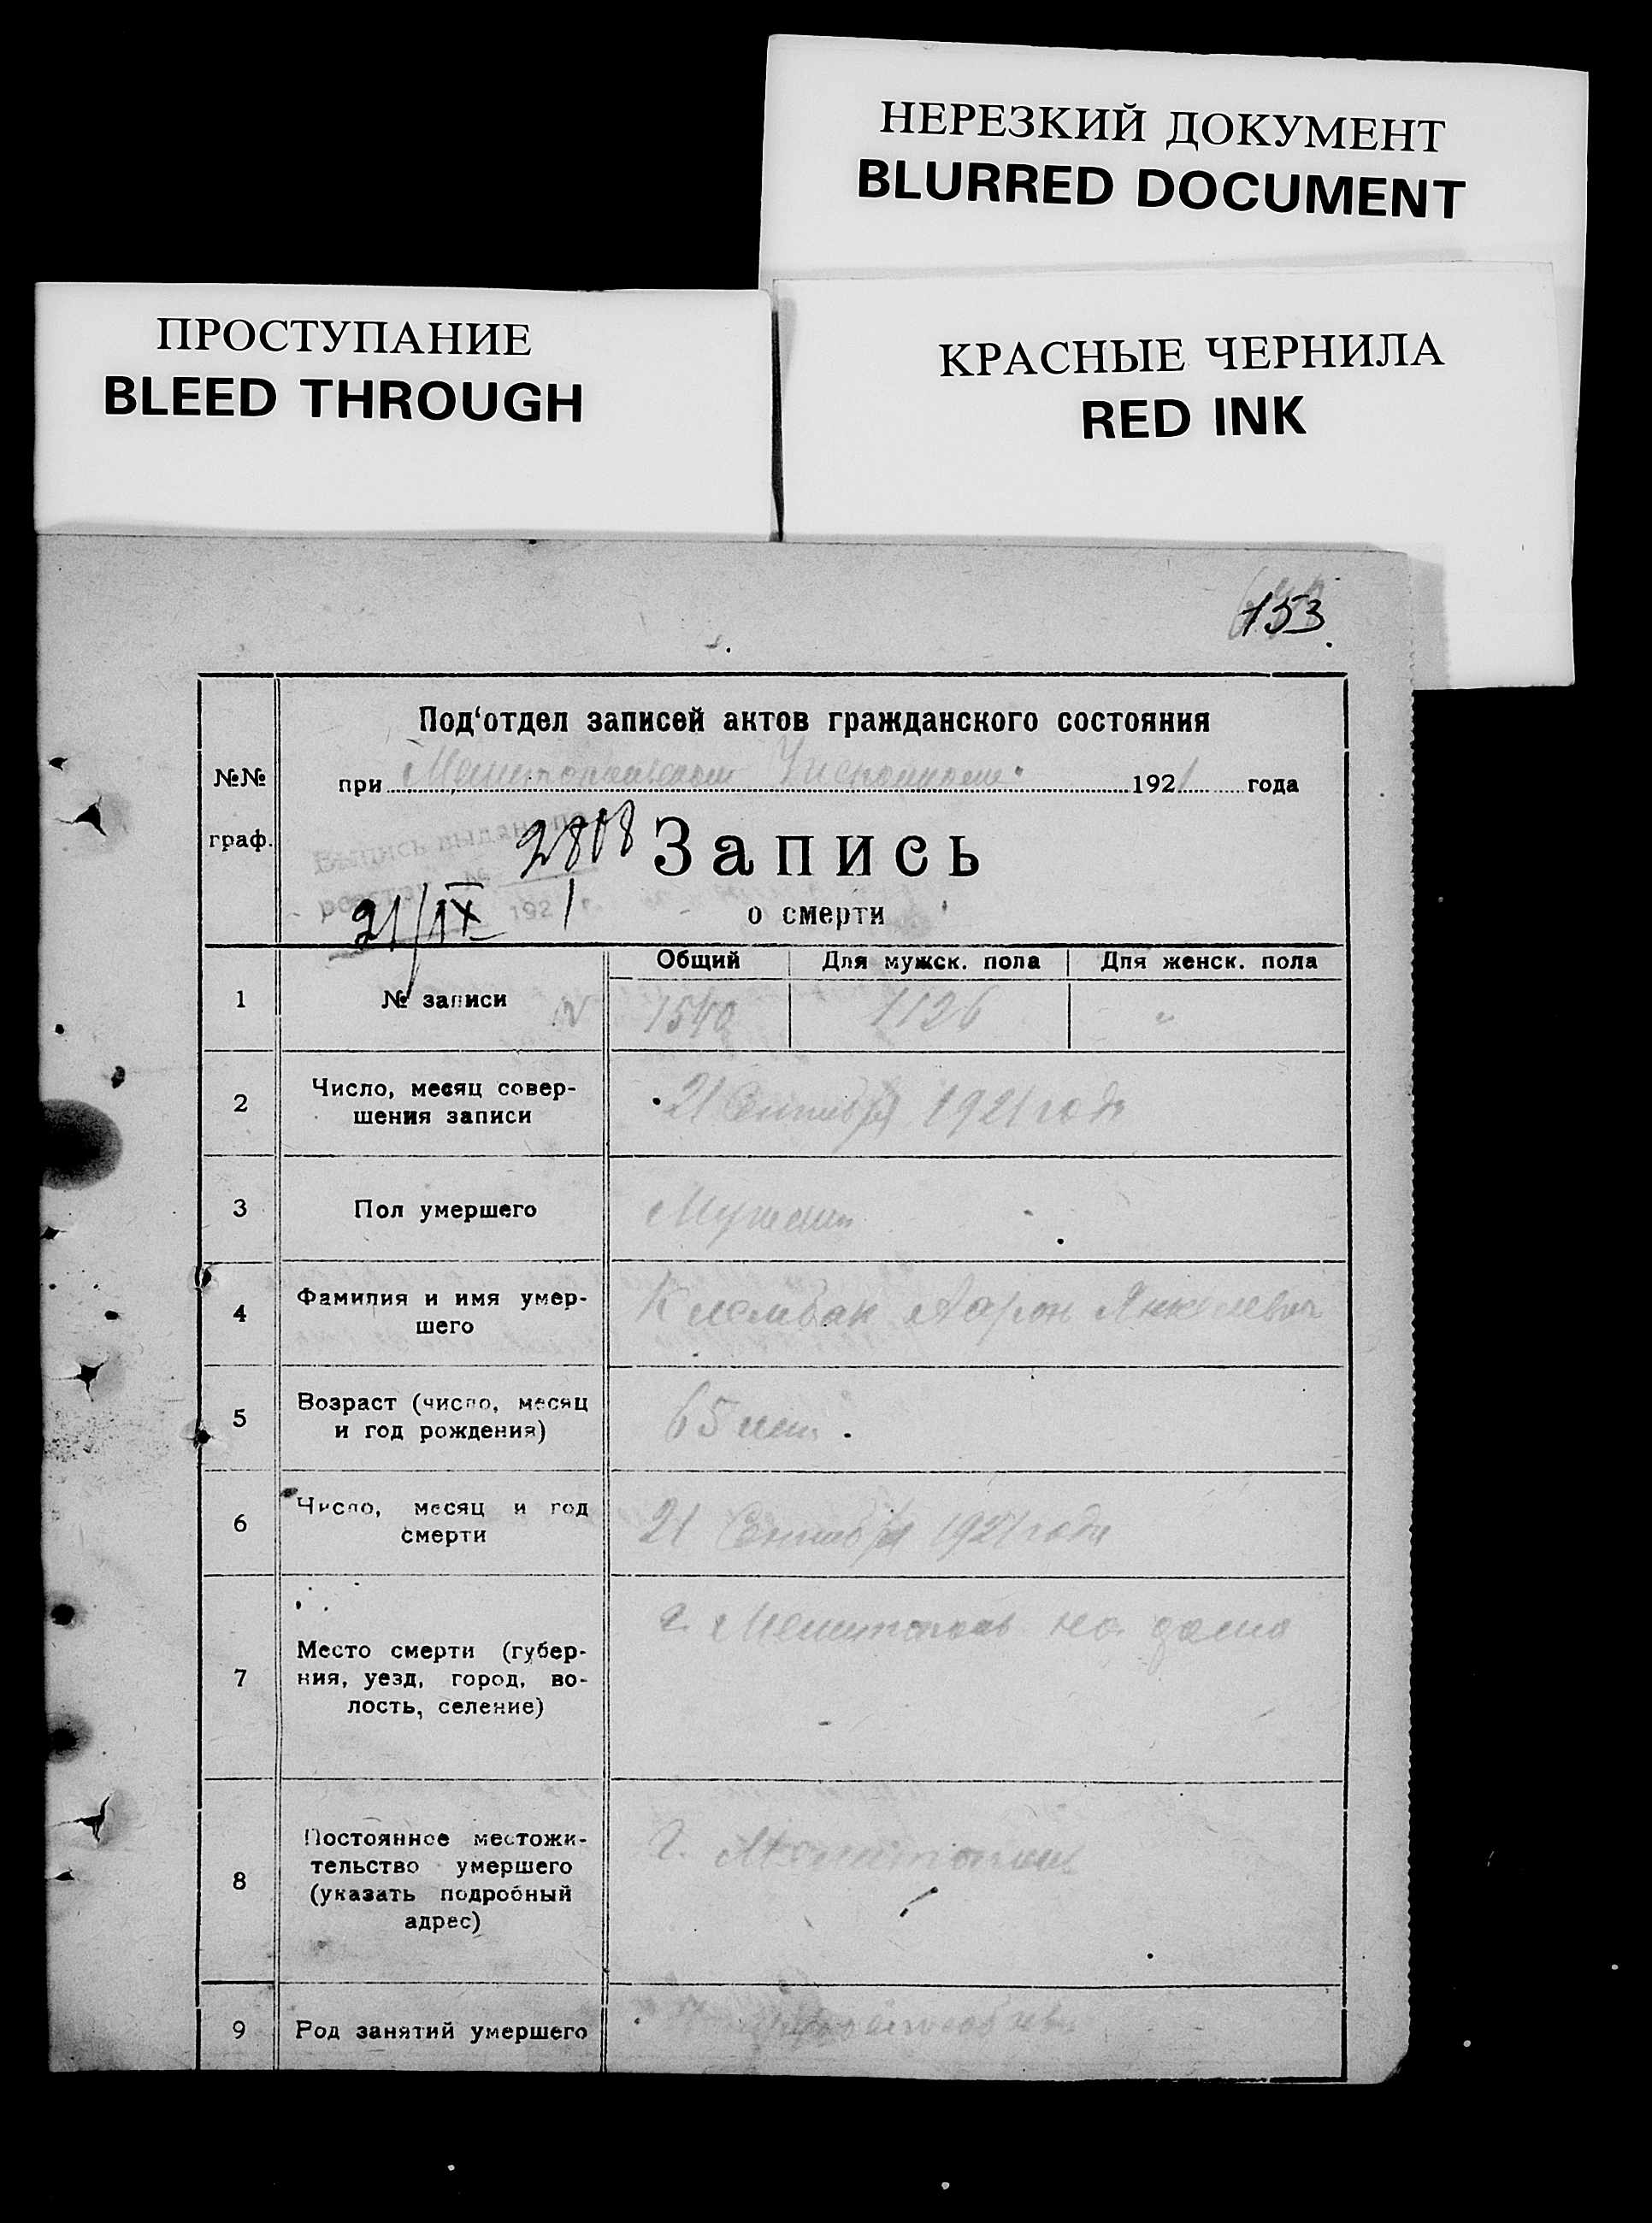 НЕРЕЗКИЙ ДОКУМЕНТ
BLURRED DOCUMENT
ПРОСТУПАНИЕ
BLEED THROUGH
КРАСНЫЕ ЧЕРНИЛА
RED INK
153
Под‘отдел записей актов гражданского состояния
№№ граф.
при 1921 года
Выпись выдана
2808
Запись
21/IX 1921 г.
о смерти
Общий Для мужск. пола Для женск. пола
1 № записи 1540 1126 "
2 Число, месяц совер-
шения записи
21 Сентября 1921 года
3 Пол умершего Мужской
4 Фамилия и имя умер-
шего
Аарон Янкелевич
5 Возраст (число, месяц
и год рождения)
65 лет
6 Число, месяц и год
смерти
21 Сентября 1921 года
7 Место смерти (губер-
ния, уезд, город, во-
лость, селение)
г. Мелитополь на дому
8 Постоянное местожи-
тельство умершего
(указать подробный
адрес)
г. Мелитополь
9 Род занятий умершего